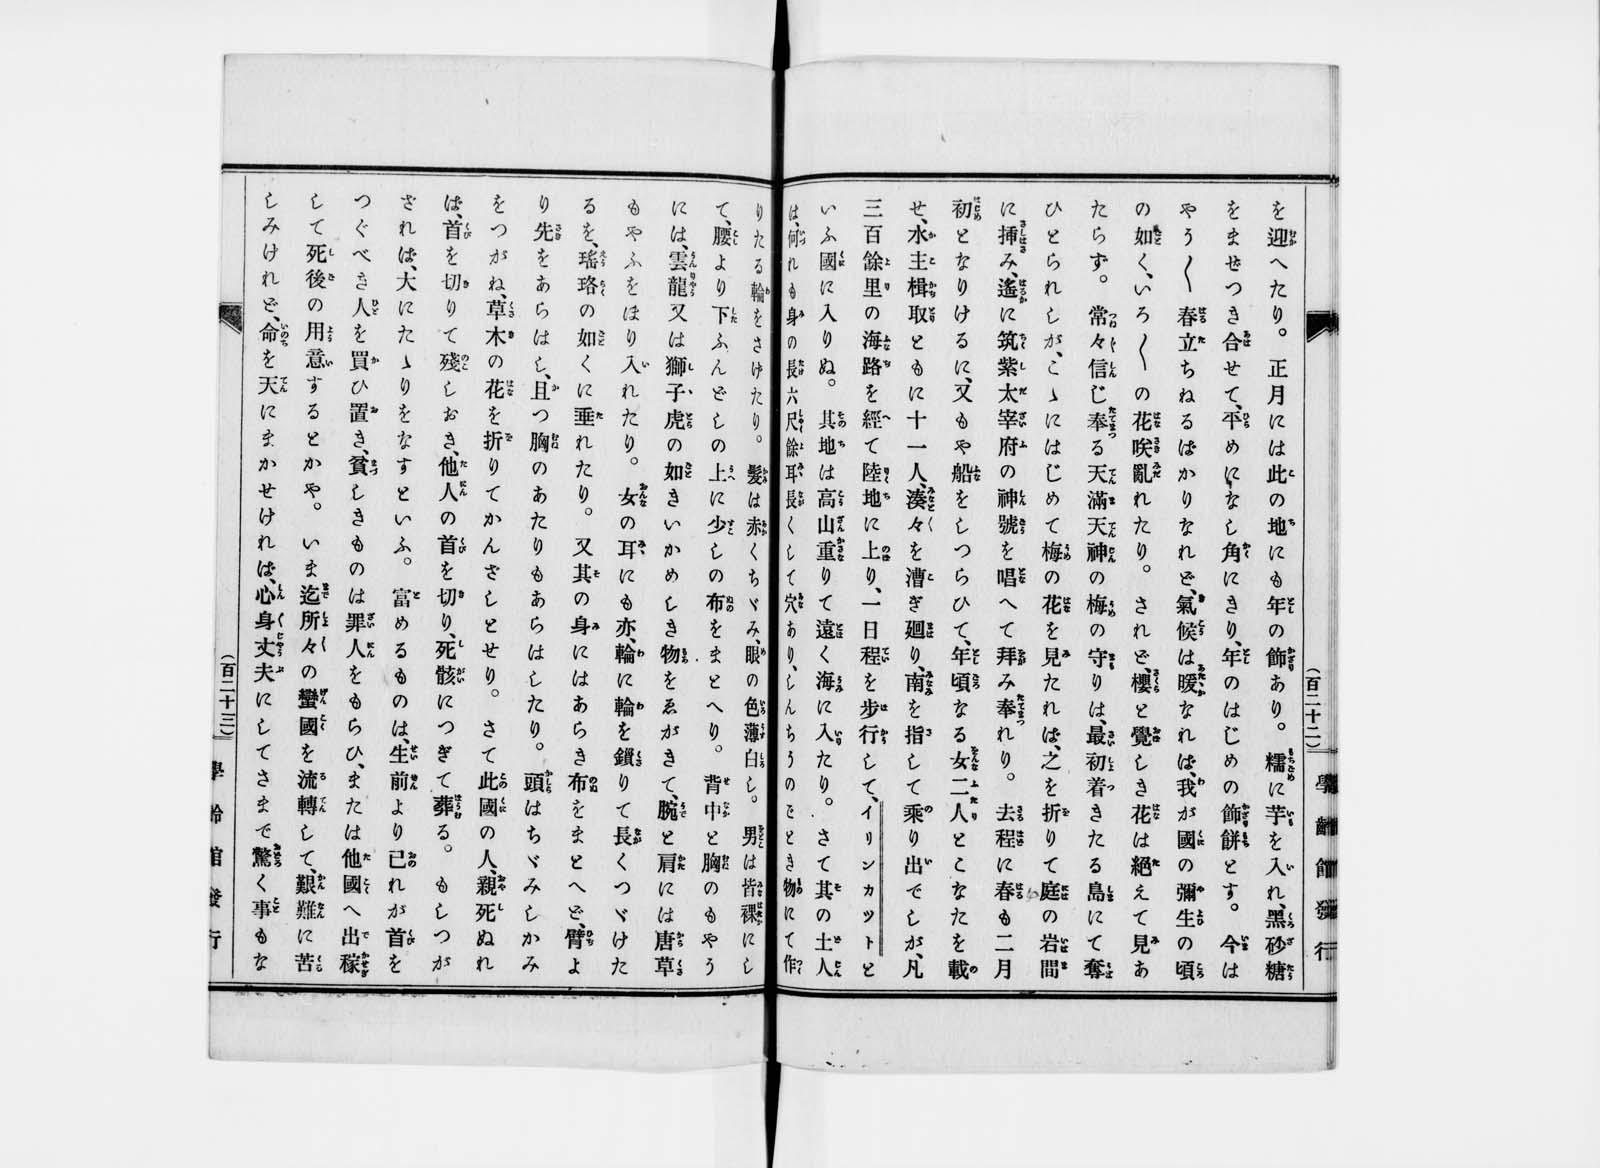 を迎へたり。正月には此の地にも年の飾あり。糯に芋を入れ、黒砂糖
をまぜつき合せて、平めになし角にきり、年のはじめの飾餅とす。今は
やう〳〵春立ちぬるばかりなれど、氣候は暖なれば、我が國の彌生の頃
の如く、いろ〳〵の花咲亂れたり。されど、櫻と覺しき花は絕えて見あ
たらず。常々信じ奉る天滿天神の梅の守りは、最初着きたる島にて奪
ひとられしが、こゝにはじめて梅の花を見たれば、之を折りて庭の岩間
に挿み、遙に筑紫太宰府の神號を唱へて拜み奉れり。去程に春も二月
初となりけるに、又もや船をしつらひて、年頃なる女二人とこなたを載
せ、水主楫取ともに十一人、湊々を漕ぎ廻り、南を指して乘り出でしが、凡
三百餘里の海路を經て陸地に上り、一日程を步行して、イリンカツトと
いふ國に入りぬ。其地は高山重りて遠く海に入たり。さて其の土人
は、何れも身の長六尺餘耳長くして穴あり、しんちうのごとき物にて作
りたる輪をさげたり。髮は赤くちゞみ、眼の色薄白し。男は皆裸にし
て、腰より下ふんどしの上に少しの布をまとへり。背中と胸のもやう
には、雲龍又は獅子虎の如きいかめしき物をゑがきて、腕と肩には唐草
もやふをほり入れたり。女の耳にも亦、輪に輪を鎖りて長くつゞけた
るを、瑤珞の如くに垂れたり。又其の身にはあらき布をまとへど、臂よ
り先をあらはし、且つ胸のあたりもあらはしたり。頭はちゞみしかみ
をつがね、草木の花を折りてかんざしとせり。さて此國の人、親死ぬれ
ば、首を切りて殘しおき、他人の首を切り、死骸につぎて葬る。もしつが
ざれば、大にたゝりをなすといふ。富めるものは、生前より已れが首を
つぐべき人を買ひ置き、貧しきものは罪人をもらひ、または他國へ出稼
して死後の用意するとかや。いま迄所々の蠻國を流轉して、艱難に苦
しみけれど、命を天にまかせければ、心身丈夫にしてさまで驚く事もな
(百二十二)
學齡館發行
(百二十三)
學齡館發行